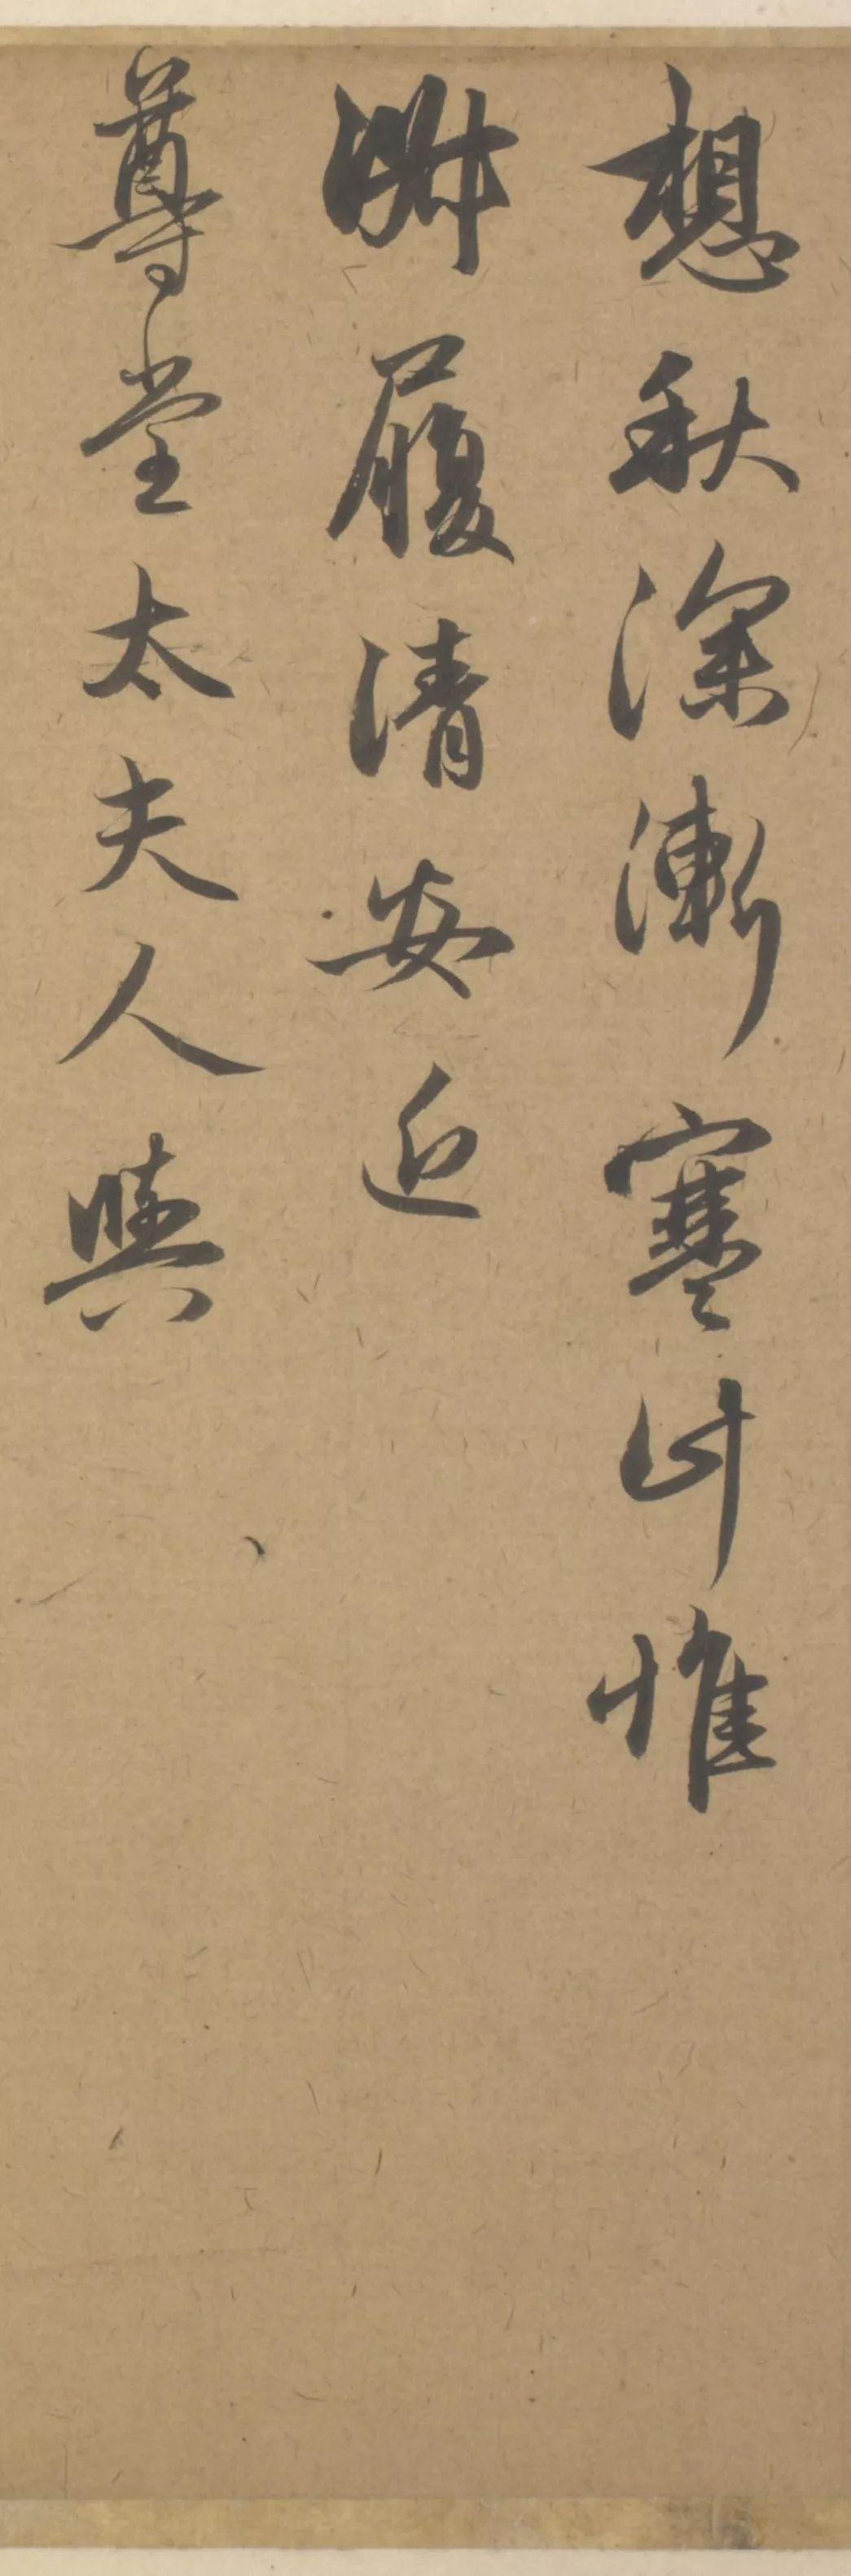 想秋深漸寒此惟
所履清安近
尊堂太夫人與